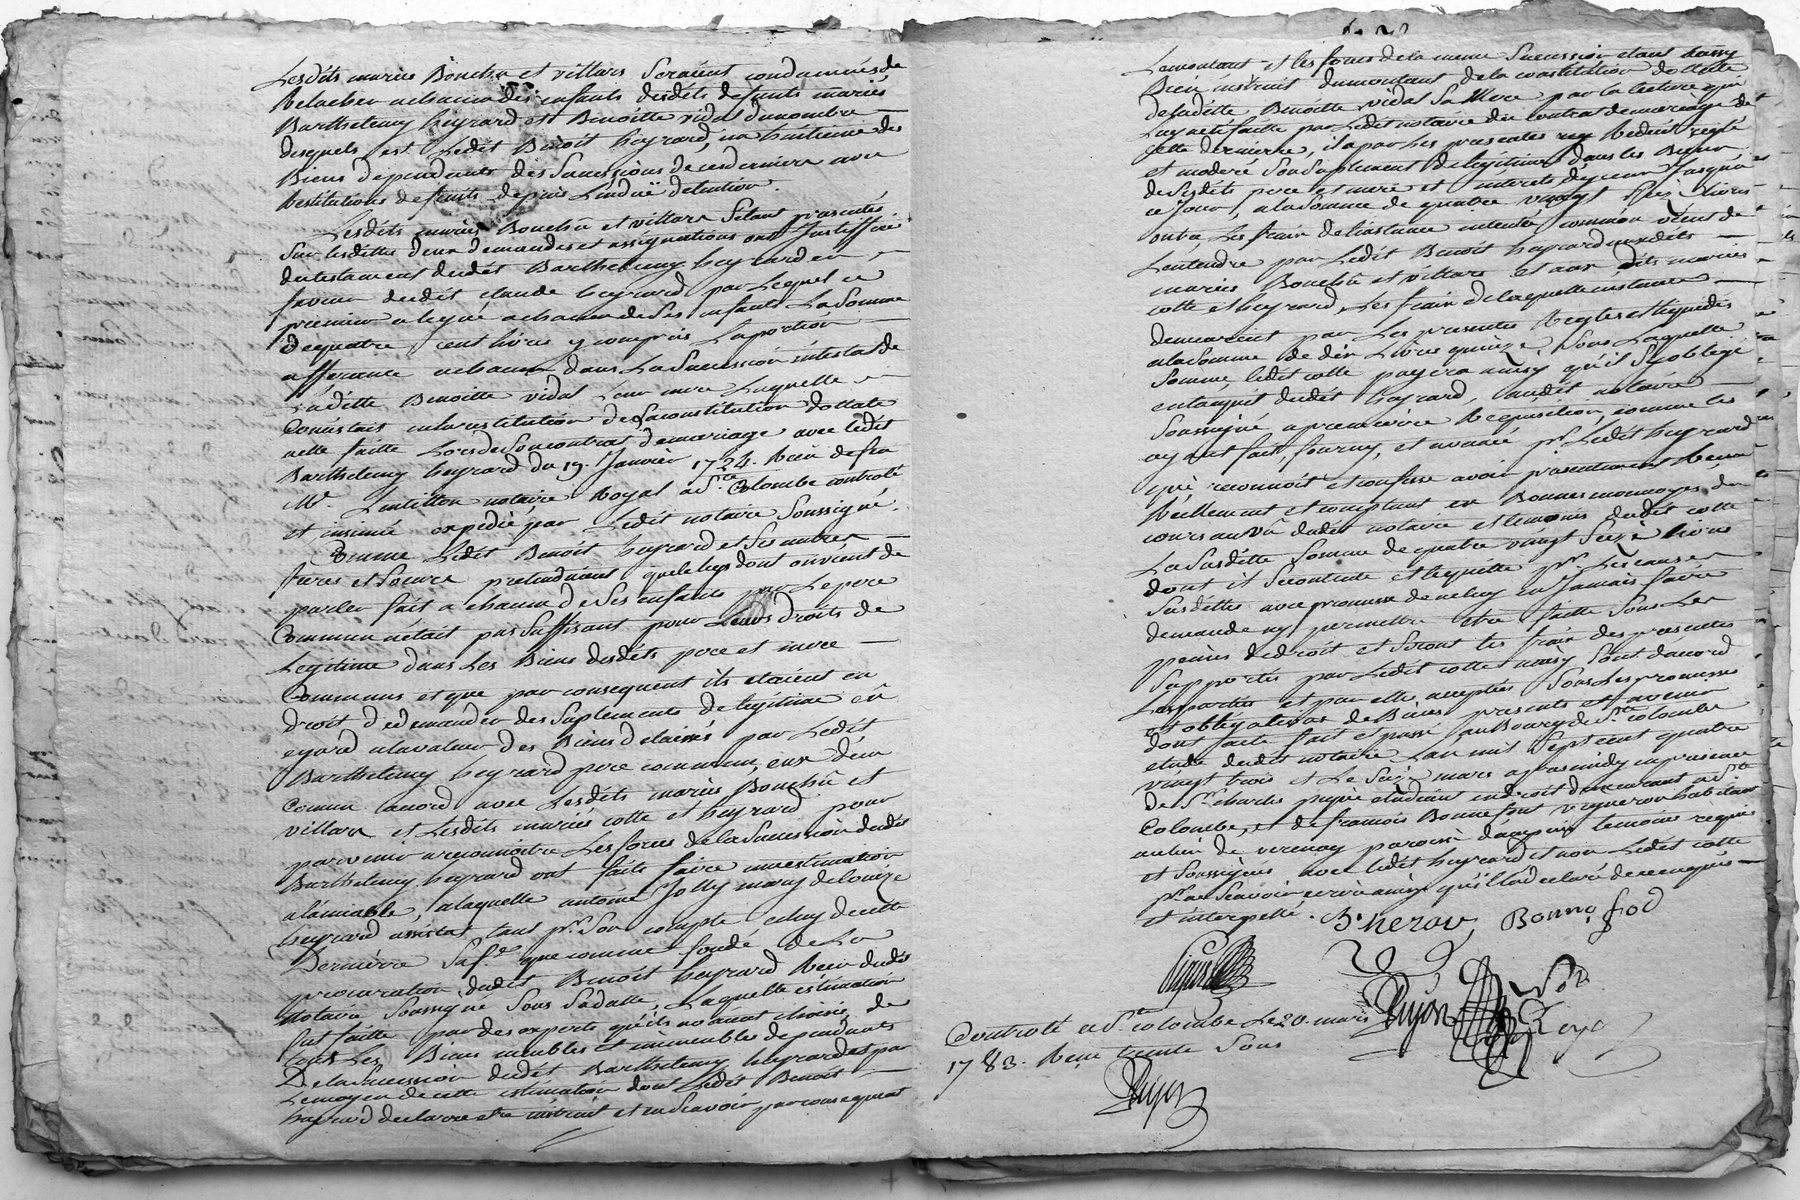 Lesdits mariés Bouchu et villars Seraient condamnés de
Relacher achacun des enfants desdits defunts mariés
Barthelemy heyrard et Benoitte vidal dunombre
desquels est Ledit Benoit heyrard, un huitieme des
Biens dependants des Successions de cesderniers avec
Restitutions defruits depuis Linduë detention.
Lesdits mariés Bouchu et villars Setant presentés
Sur lesdittes deux demandes et assignations ont Justiffié
dutestament dudit Barthelemy heyrard en
faveur dudit claude heyrard par Lequel ce
premier a legué achacun de Ses enfants La Somme
de quatre cent livres y compris La portion
afferante achacun dans La Succession intestat de
Laditte Benoitte vidal Leur mere Laquelle
Consistait enlarestitution de Saconstitution dottale
aelle faitte Lors de Soncontrat demariage avec ledit
Barthelemy heyrard du 19. Janvier 1724. Reçu defeu
Me. Lentillon notaire Royal a Ste. Colombe controlé
et insinué expedié par Ledit notaire Soussigné.
Comme Ledit Benoit heyrard et Ses autres
freres et Soeurs pretendaient que le legs dont onvient de
parler fait a chacun de Ses enfants par Le pere
Commun n'était pas Suffisant pour Leurs droits de
Legitime dans Les Biens desdits pere et mere
Communs et que par consequent ils étaient en
droit de demander des Suplements de legitime en
egard alavaleur des Biens delaissés par Ledit
Barthelemy heyrard pere commun, eux d'un
Commun acord avec Lesdits mariés Bouchu et
villars et Lesdits mariés cotte et heyrard pour
parvenir areconnoitre Les forces de la Succession dudit
Barthelemy heyrard ont faits faire uneestimation
alamiable, alaquelle antoine Jolly mary de louize
heyrard assista tant pr. Son compte, celuy decette
Derniere Sa fe. que comme fondé de La
procuration dudit Benoit heyrard Reçu dudit
notaire Soussigné Sous Sadatte, Laquelle estimation
fut faitte par des experts qu'ils noauraient choisis de
tous Les Biens meubles et immeubles dependants
De la Succession dudit Barthelemy heyrard et par
Lemoyen de cette estimation dont Ledit Benoit
heyrard declare etre instruit et enSavoir par consequent
Lemontant et les forces de la meme Succession etant aussy
Bien instruit dumontant de la constitution dottale
de laditte Benoitte vidal Sa Mere par la lecture qui
Luy aété faitte par Ledit notaire du contrat demariage de
cette derniere, il a par Les presentes Reglé
et moderé Son Suplement de legitime dans les Biens
de Sesdits pere et mere et interets d'yceux Jusqu'a
ce Jour, a la Somme de quatre vingt Seize Livres
outre Les frais de linstance intentée comme on vient de
L'entendre par Ledit Benoit heyrard auxdits
mariés Bouchu et villars et aux dits mariés
cotte et heyrard, Les frais de laquelle instance
demeurent par Les presentes Reglés et liquidés
a la Somme de dix Livres quinze Sous Laquelle
Somme, ledit cotte payera ainsy qu'il S'y oblige
enlacquit dudit heyrard, audit notaire
Soussigné a premiere Requisition, comme les
ayant fait, fourny, et avancé pr. Ledit heyrard
qui reconnoit et confesse avoir presentement Reçu
Réellement et comptant en Bonnes monnoyes du
cours au vû dudit notaire et temoins dudit cotte
La Susditte Somme de quatre vingt Seize livres
dont il Secontente et lequitte pr. Les causes
Susdittes avec promesse de ne luy en Jamais faire
demande ny permettre être faitte Sous Les
peines de droit et Seront les frais des presentes
Supportés par Ledit cotte ainsy Sont dacord
Les parties et par elles acceptées Sous Les promesses
et obligations de Biens presents et avenir
dont acte fait et passé au Bourg de Ste. colombe
etude dudit notaire Lan mil Sept cent quatre
vingt trois et Le Seize mars apres midy en presence
de Sr. charles etudiant endroit demeurant a Ste
Colombe, et de francois Bonnefont vigneron habitant
aulieu de verenay paroisse dampuis temoins requis
et Soussignés avec ledit heyrard et non Ledit cotte
pr. ne Scavoir ecrire ainsy qu'il l'a declaré de ce enquis
et interpellé.
B. herar Bonnofod
Dujon
Controlé a Ste. colombe Le 20. mars
1783. Reçu trente Sous
Dujon